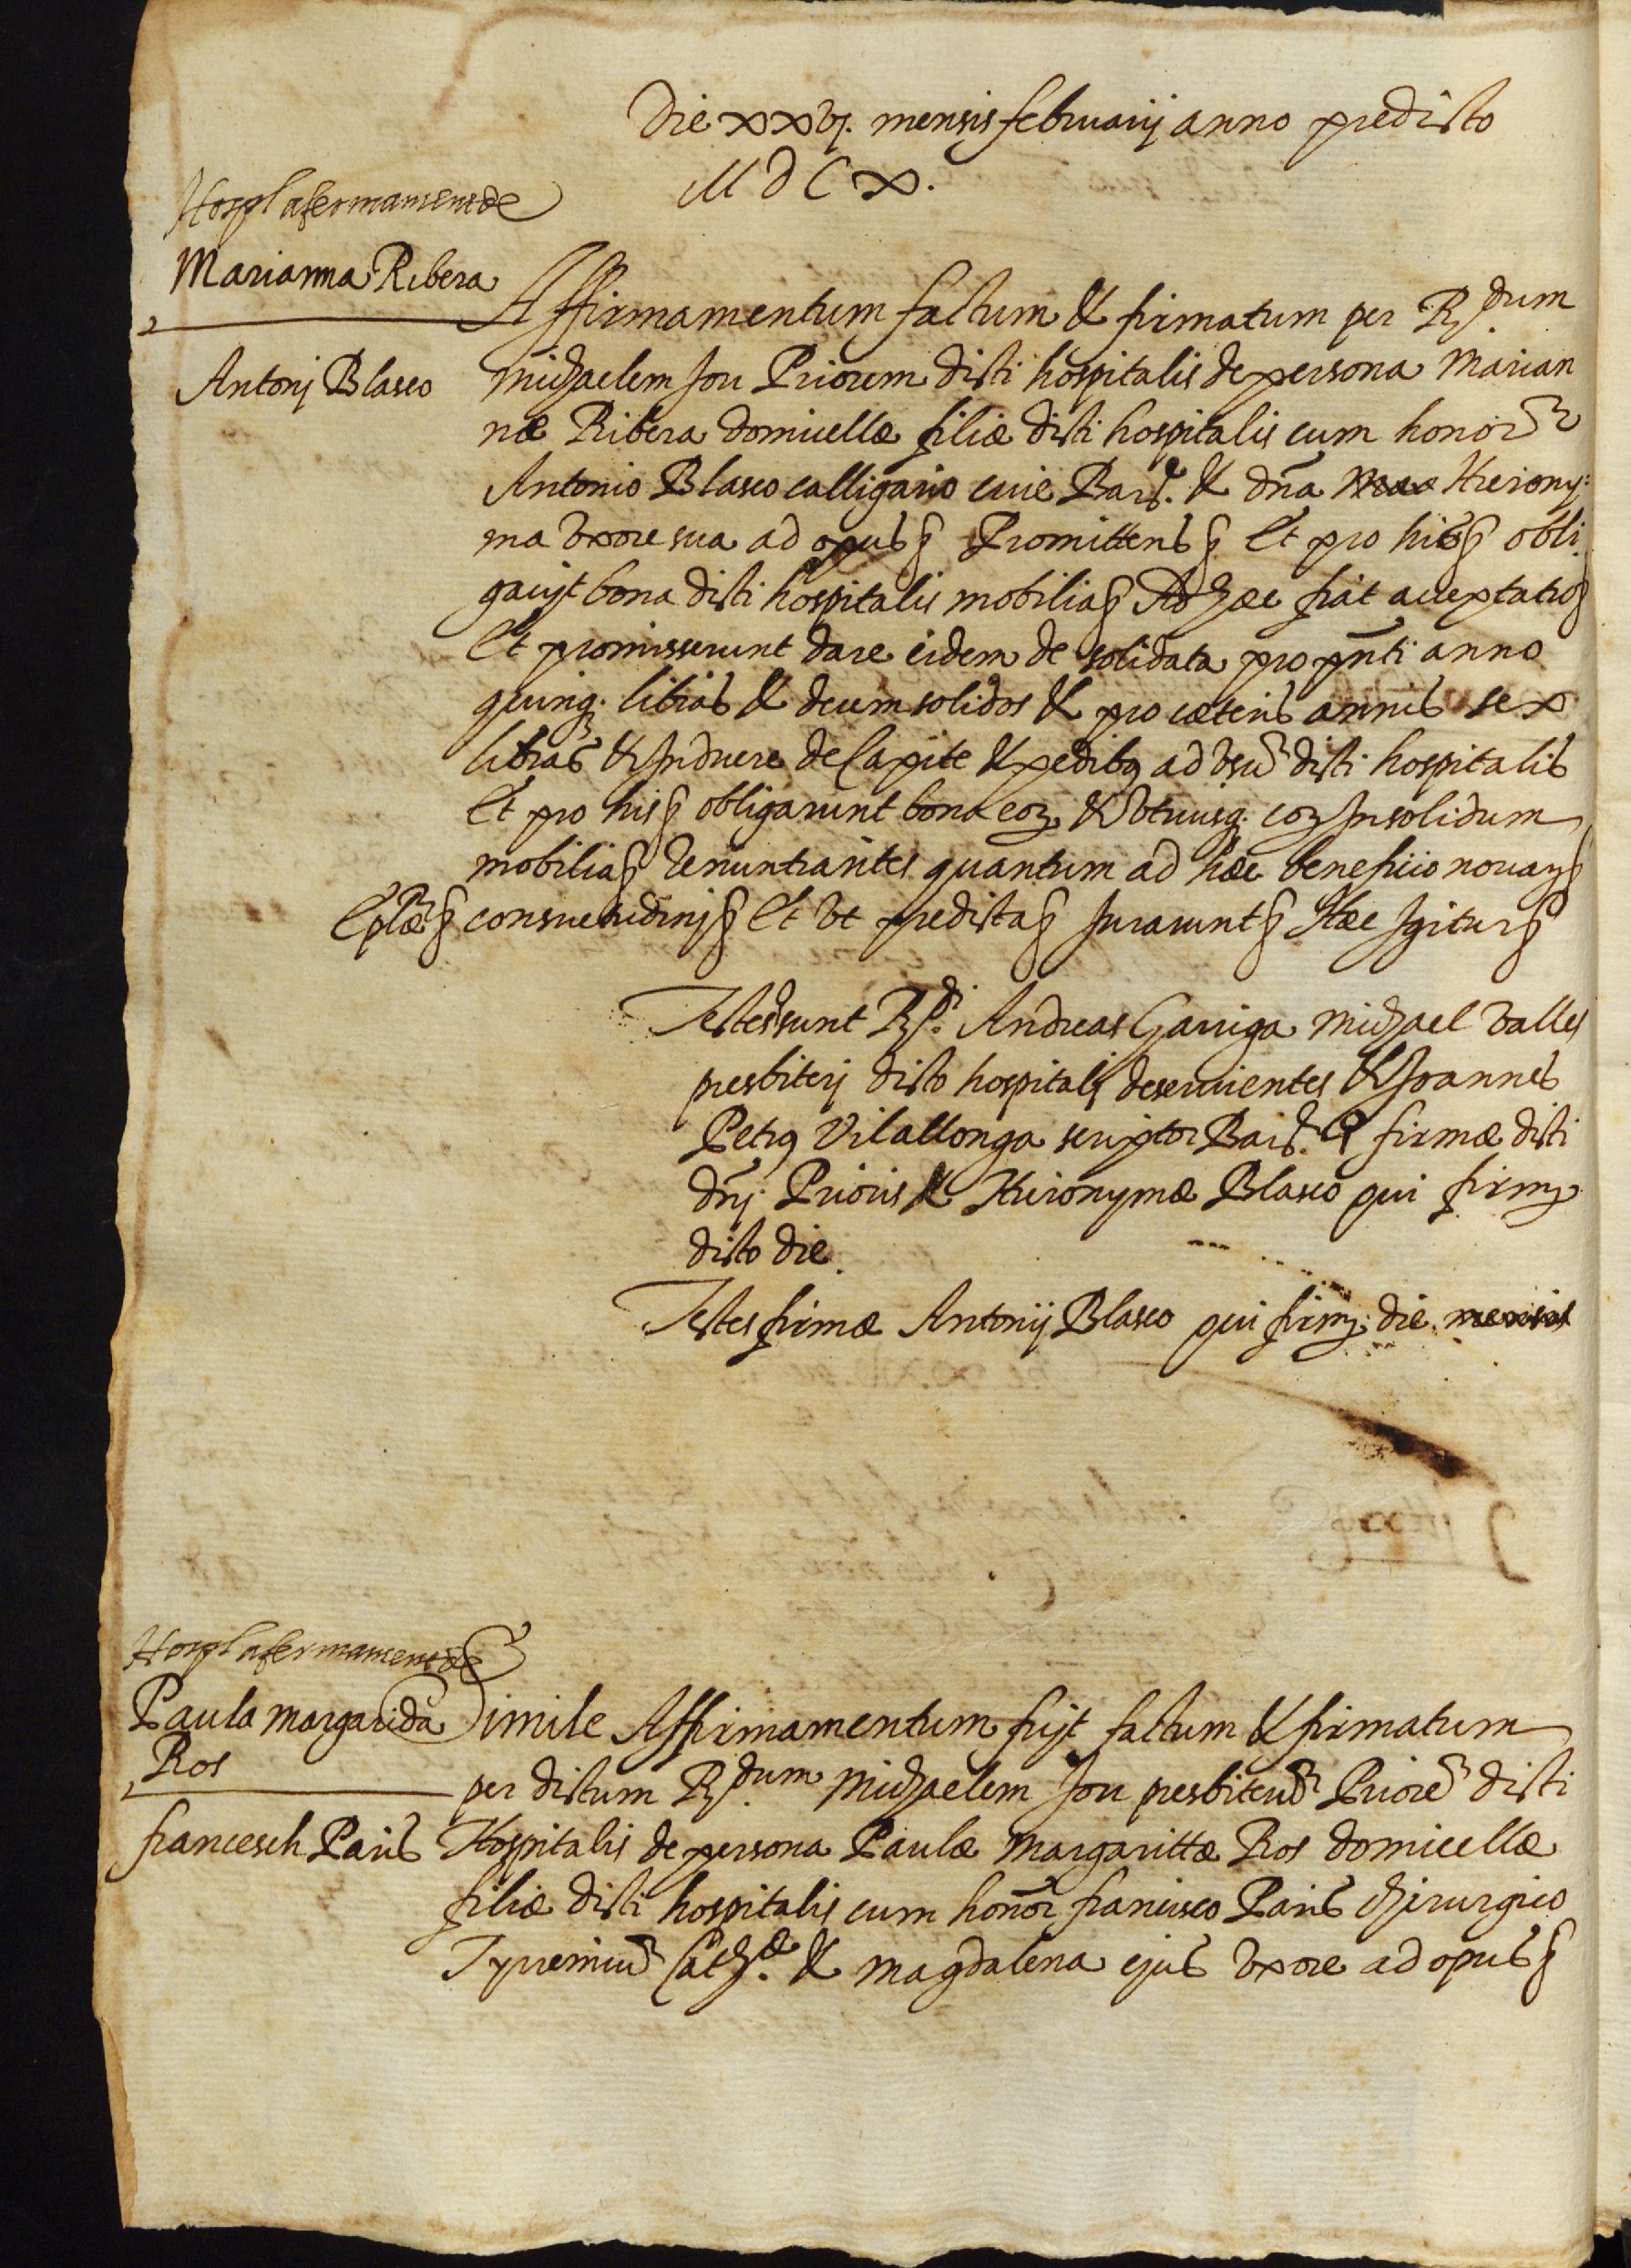 Die xxvj. mensis februarij anno predicto
MDCx.
Hospl afermament de
Marianna Ribera
Antonj Blasco
Affirmamentum factum & firmatum per Rdum
Michaelem Jou Priorem dicti hospitalis de persona Marian
næ Ribera domicellæ filiæ dicti hospitalis cum honor
Antonio Blasco calligario cive Baræ. & dña Hierony:
ma vxore sua ad opus& Promittens& Et pro his& obli
gavit bona dicti hospitalis mobilia& Ad hæc fiat acceptatio&
Et promisserunt dare eidem de solidata pro pñti anno
quinq. libras & decem solidos & pro cæteris annis sex
libras & Induere de Capite & pedibus ad vsu dicti hospitalis
Et pro his& obligarunt bona eoz & vtriusq. eoz Insolidum
mobilia& Renuntiantes quantum ad hæc beneficio novaz&
Eplæ& consuetudinj& Et vt predicta& Jurarunt& Hæc Igitur&
Testes sunt Rdi Andreas Garriga Michael Valles
presbiterj dicto hospitalj deservientes & Joannes
Petrus Vilallonga scriptor Bar. firmæ dicti
dnj. Prioris & Hieronymæ Blasco qui firmz
dicto die.
Testes firmæ Antonij Blasco qui firmz. die mensis
Hospl afermament de
Paula Margarida
Ros
francesch Paris
Simile Affirmamentum fuit factum & firmatum
per dictum Rdum Michaelem Jou presbiteru Priore dicti
Hospitalis de persona Paulæ Margarittæ Ros domicellæ
filiæ dicti hospitalis cum honor francisco Paris chirurgico
Cathæ. & Magdalena ejus vxore ad opus&